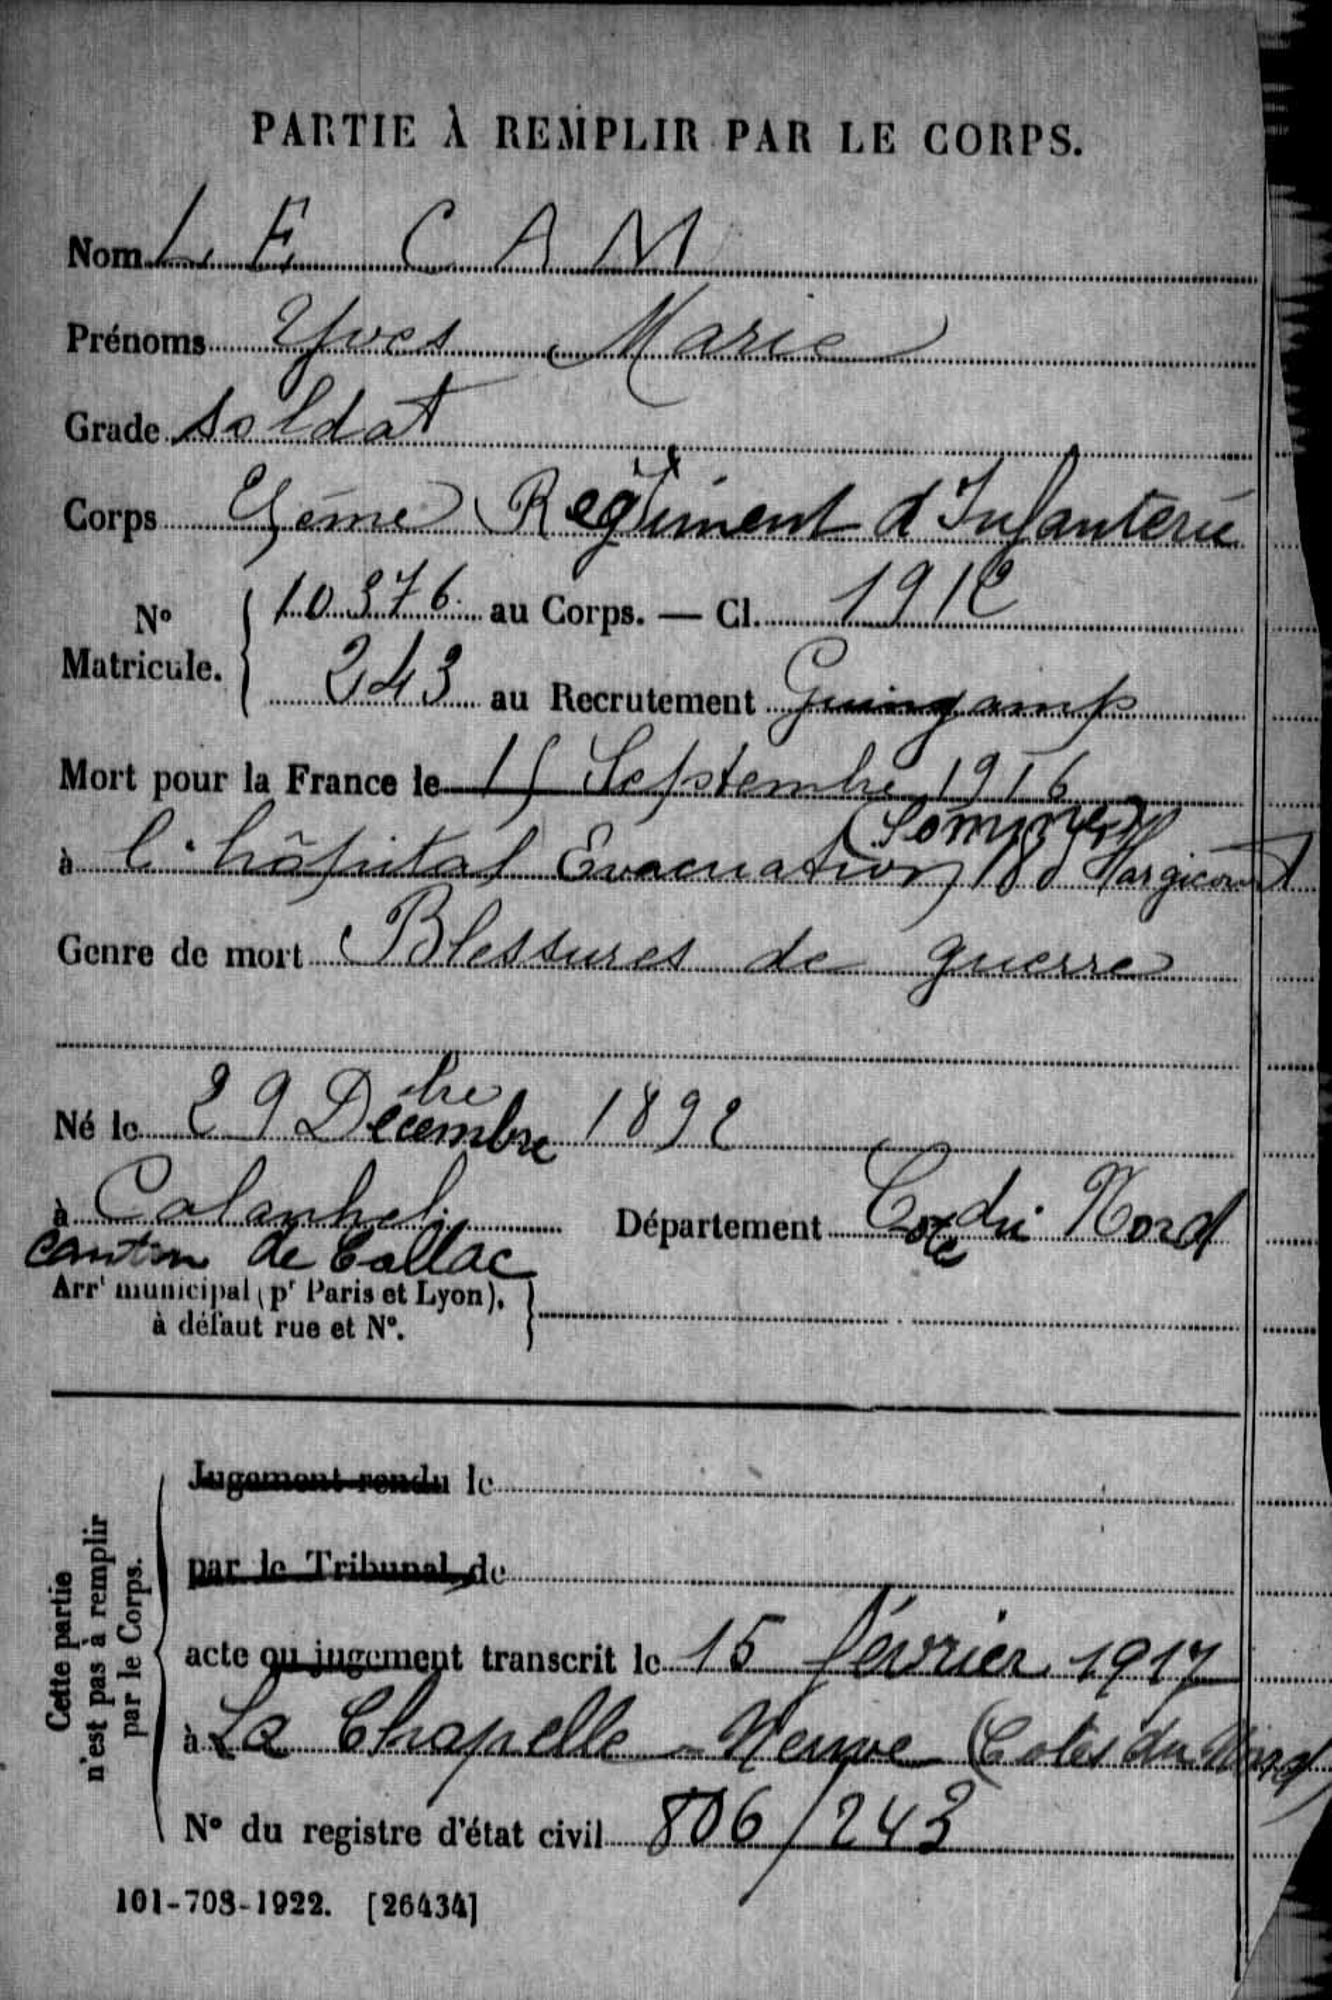 PARTIE À REMPLIR PAR LE CORPS.
Nom LE CAM
Prénoms Yves Marie
Grade soldat
Corps ème Régiment d'Infanterie
N° Matricule. 10376 au Corps. — Cl. 1912
243 au Recrutement Guingamp
Mort pour la France le 15 Septembre 1916
(Somme)
à l'hôpital Evacuation 18 d Hargicourt
Genre de mort Blessures de guerre
Né le 29 Décembre 1892
à Calanhel Département Côte du Nord
canton de Callac
Arrt municipal (pr Paris et Lyon),
à défaut rue et N°.
Cette partie
n'est pas à remplir
par le Corps.
Jugement rendu le
par le Tribunal de
acte ou jugement transcrit le 15 février 1917
à La Chapelle-Neuve (Côtes du Nord)
N° du registre d'état civil 806/243
101-708-1922. [26434]